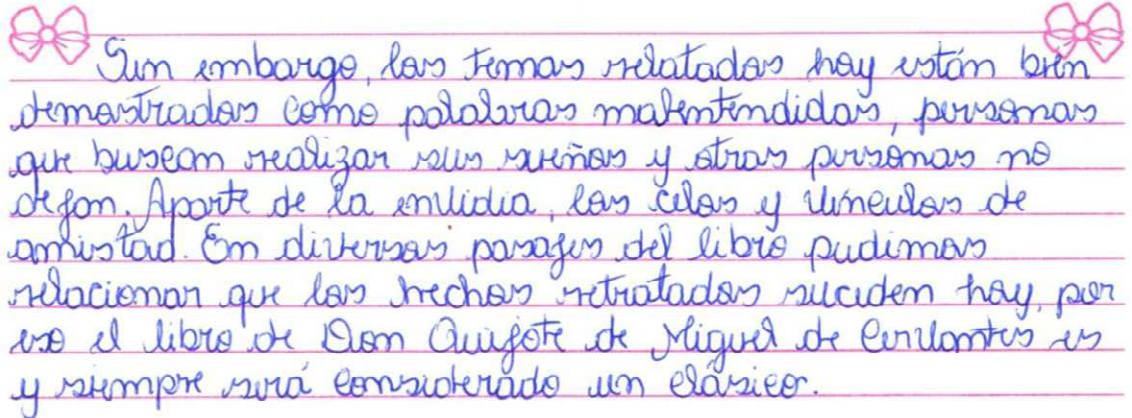 Sin embargo, los temas relatados hoy están bien
demostrados como palabras malentendidas, personas
que buscan realizar sus sueños y otras personas no
dejan. Aparte de la envidia, los celos y vínculos de
amistad. En diversos pasajes del libro pudimos
relacionar que los hechos retratados suceden hoy, por
eso el libro de Don Quijote de Miguel de Cervantes es
y siempre será considerado un clásico.